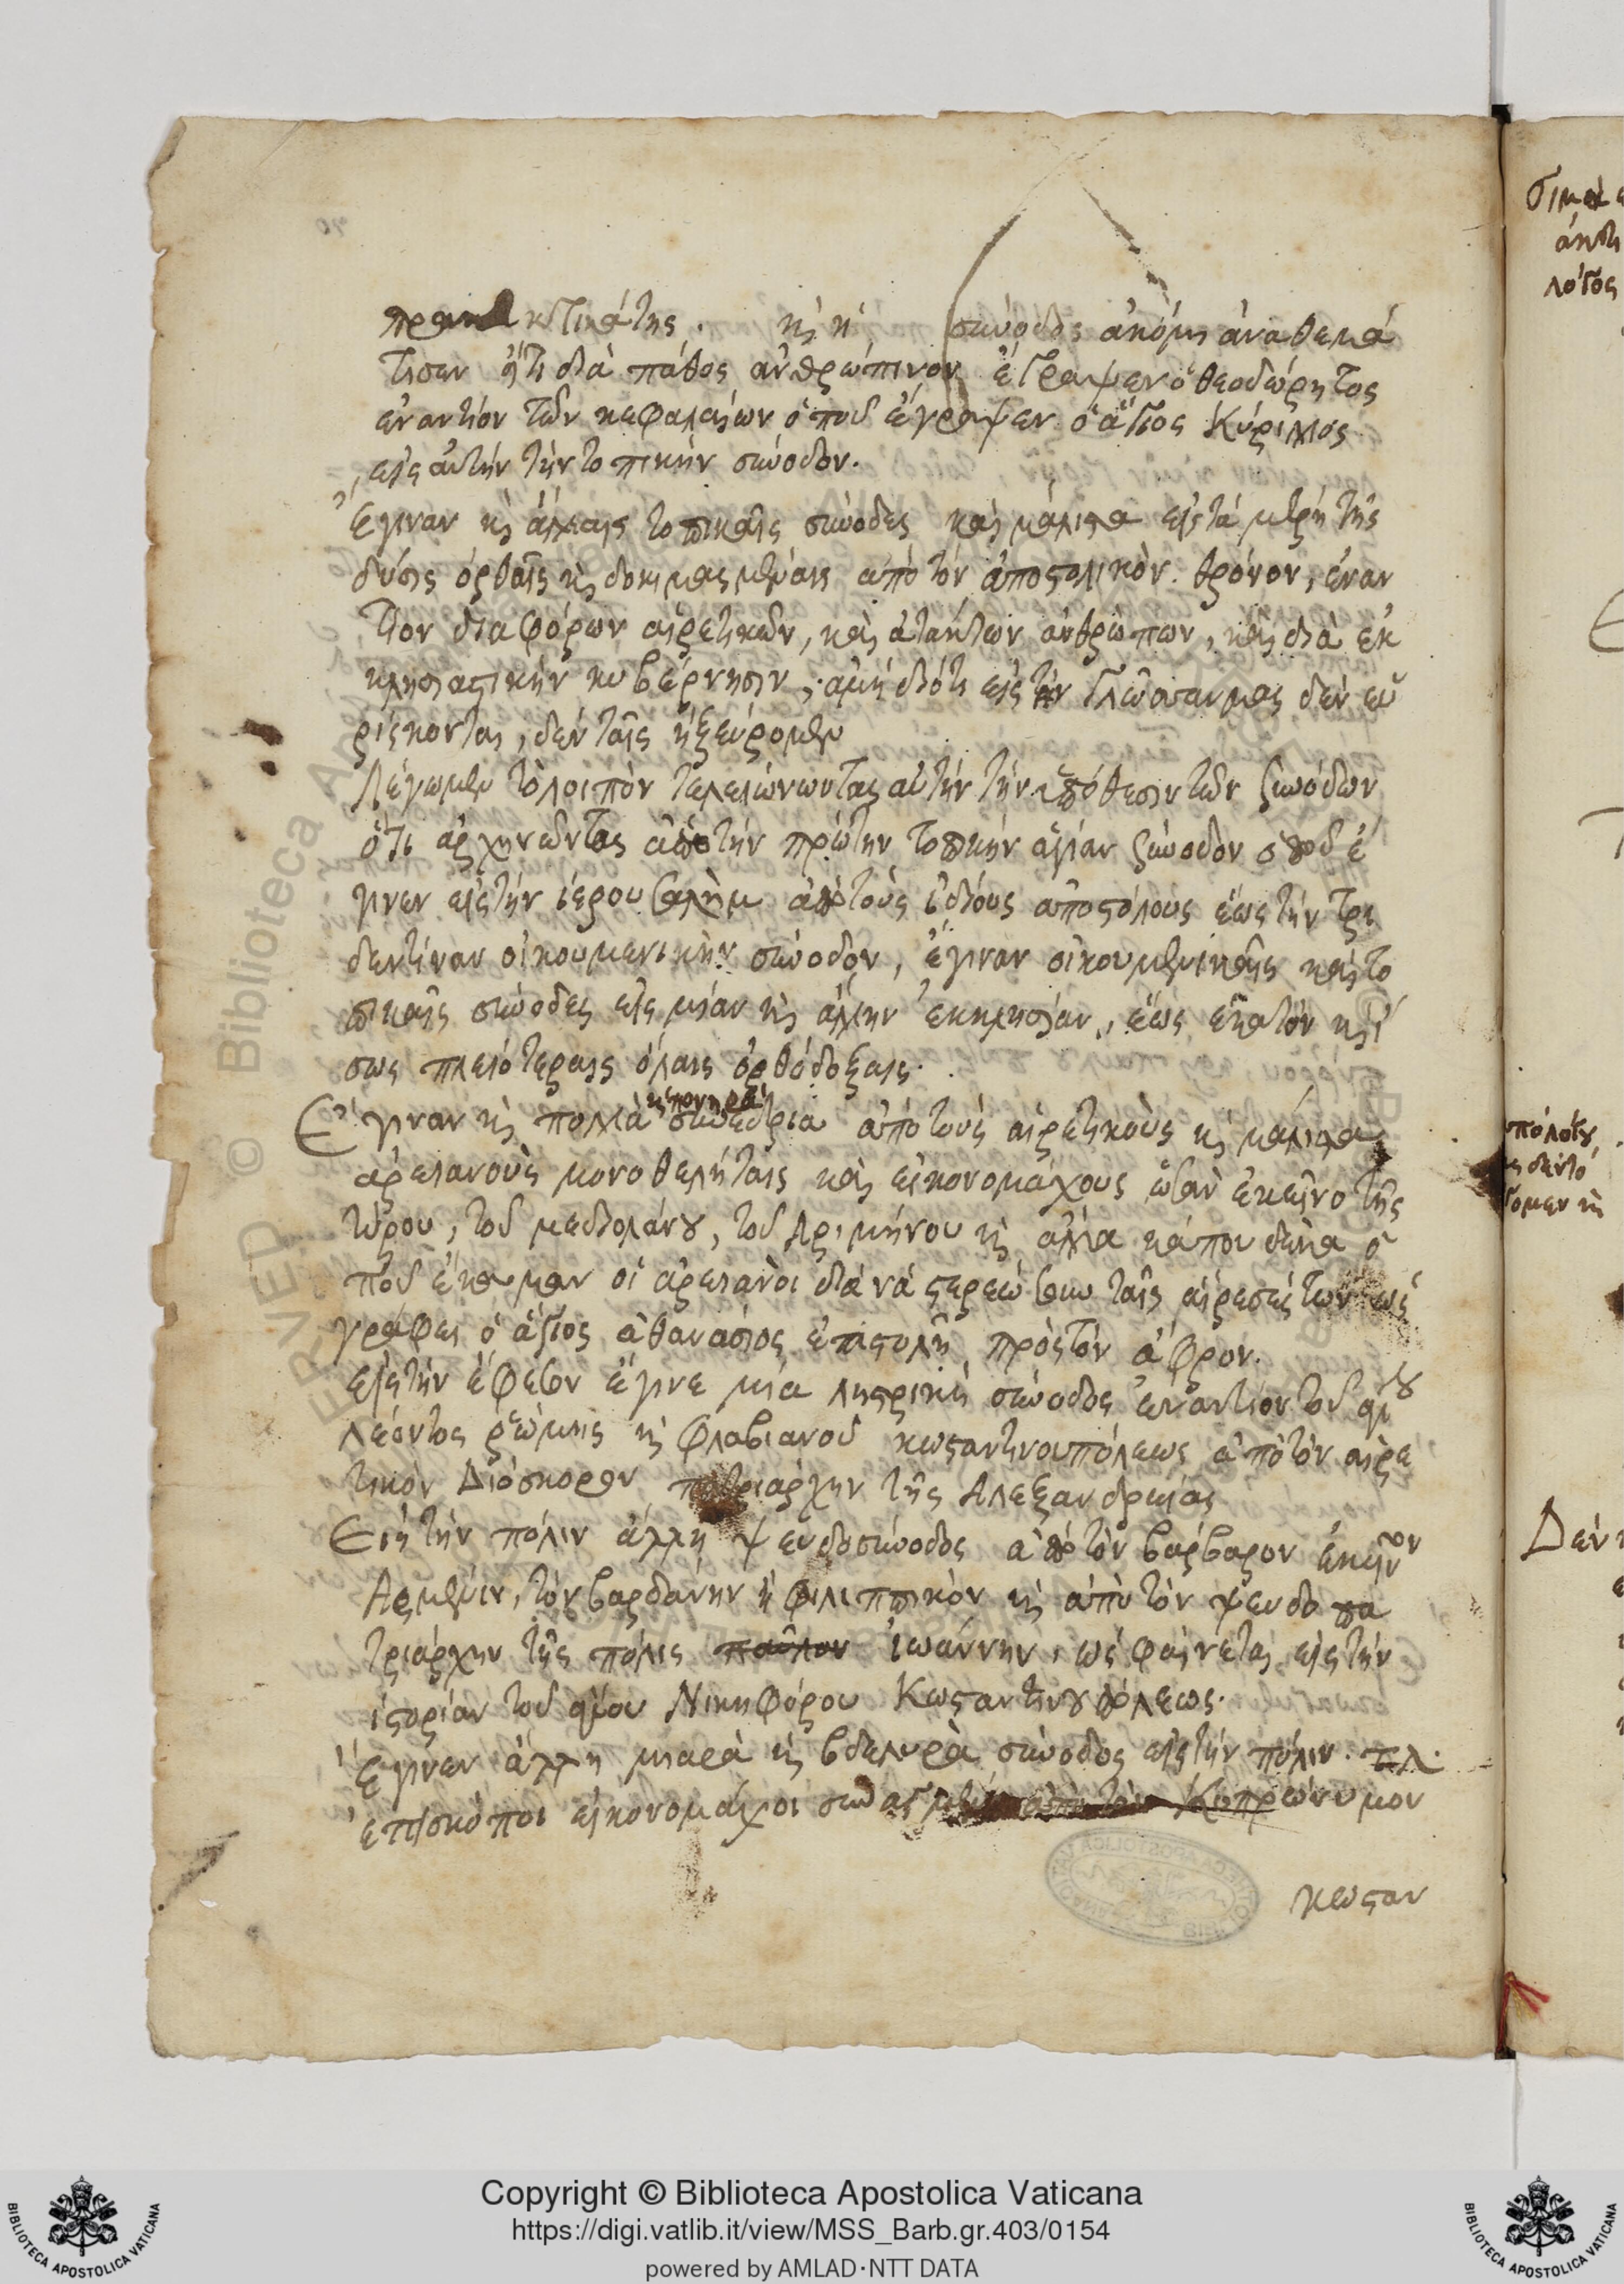 πρακτικάτης. κὶ ἡ σύνοδος ἀκόμη ἀναθεμά
τισεν ὅτι διὰ πάθος ἀνθρώπινον ἔγραψεν ὁ θεοδώρητος
ἐναντίον τῶν κεφαλαίων ὁποῦ ἔγραψεν ὁ ἅγιος Κύριλλος
εἰς αὐτὴν τὴν τοπικὴν σύνοδον.
Ἔγιναν κὶ ἄλλαις τοπικαῖς σύνοδες καὶ μάλιστα εἰς τὰ μέρη τῆς
δύσις ὀρθαῖς κὶ δοκιμασμέναις ἀπὸ τὸν ἀποστολικὸν θρόνον, ἐναν
τίον διαφόρων αἱρετικῶν, καὶ ἀτάκτων ἀνθρώπων, καὶ διὰ ἐκ
κλησιαστικὴν κυβέρνησιν, ἀμὴ διότι εἰς τὴν γλῶσσαν μας δὲν εὑ
ρίσκονται, δὲν ταῖς ἠξεύρομεν
Λέγωμεν τὸ λοιπὸν τελειώνωντας αὐτὴν τὴν ὑπόθεσιν τῶν ξυνόδων
ὅτι ἀρχηνῶντας ἀπὸ τὴν πρώτην τοπικὴν ἁγίαν ξύνοδον ὁποῦ ἔ
γινεν εἰς τὴν ἱερουσαλὴμ ἀπὸ τοὺς ἰδίους ἀποστόλους ἕως τὴν τρι
δεντίναν οἰκουμενικὴν σύνοδον, ἔγιναν οἰκουμενικαῖς καὶ το
πικαῖς σύνοδες εἰς μίαν κὶ ἄλλην ἐκκλησίαν, ἕως ἑκατὸν κὶ ἴ
σως πλειότεραις ὅλαις ὀρθόδοξαις.
Ἔγιναν κὶ πολλὰ κὶ πονηρὰ συνέδρια ἀπὸ τοὺς αἱρετικοὺς κὶ μάλιστα
ἀρειανοὺς μονοθελήταις καὶ εἰκονομάχους ὡσὰν ἐκεῖνο τῆς
τύρου, τοῦ μεδιολάνου, τοῦ Ἀριμήνου κὶ ἄλλα κάπου δέκα ὁ
ποῦ ἔκαμαν οἱ ἀρειανοὶ διὰ νὰ στερεώσουν ταῖς αἵρεσές των ὡς
γράφει ὁ ἅγιος ἀθανάσιος ἐπιστολῇ πρὸς τὸν ἄφρον.
εἰς τὴν ἔφεσον ἔγινε μία ληστρικὴ σύνοδος ἐναντίον τοῦ ἁγίου
λέοντος ῥώμης κὶ φλαβιανοῦ κωσταντινουπόλεως ἀπὸ τὸν αἱρε
τικὸν Διόσκορον πατριάρχην τῆς Ἀλεξανδρείας
Εἰς τὴν πόλιν ἄλλη ψευδοσύνοδος ἀπὸ τὸν βάρβαρον ἐκεῖνον
Ἀρμένιν, τὸν βαρδάνην ἢ φιλιππικὸν κὶ ἀπὸ τὸν ψευδοπα
τριάρχην τῆς πόλις παῦλον ἰωάννην, ὡς φαίνεται εἰς τὴν
ἱστορίαν τοῦ ἁγίου Νικηφόρου Κωσταντινουπόλεως.
Ἔγινεν ἄλλη μιαρὰ κὶ βδελυρὰ σύνοδος εἰς τὴν πόλιν. τλ.
ἐπισκόποι εἰκονομάχοι ἀπὸ τὸν Κοπρώνυμον
κωσταν
Copyright © Biblioteca Apostolica Vaticana
https://digi.vatlib.it/view/MSS_Barb.gr.403/0154
powered by AMLAD·NTT DATA